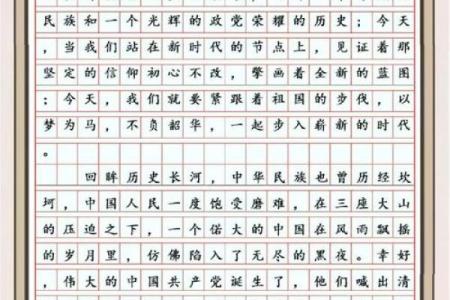 民族和一个光辉的政党荣耀的历史；今天
，当我们站在新时代的节点上，见证着那
坚定的信仰初心不改，擘画着全新的蓝图
；今天，我们就要紧跟着祖国的步伐，以
梦为马，不负韶华，一起步入崭新的时代
。
回眸历史长河，中华民族也曾历经坎
坷，中国人民一度饱受磨难，在三座大山
的压迫之下，一个偌大的中国在风雨飘摇
的岁月里，仿佛陷入了无尽的黑夜。幸好
，伟大的中国共产党诞生了，他们喊出清